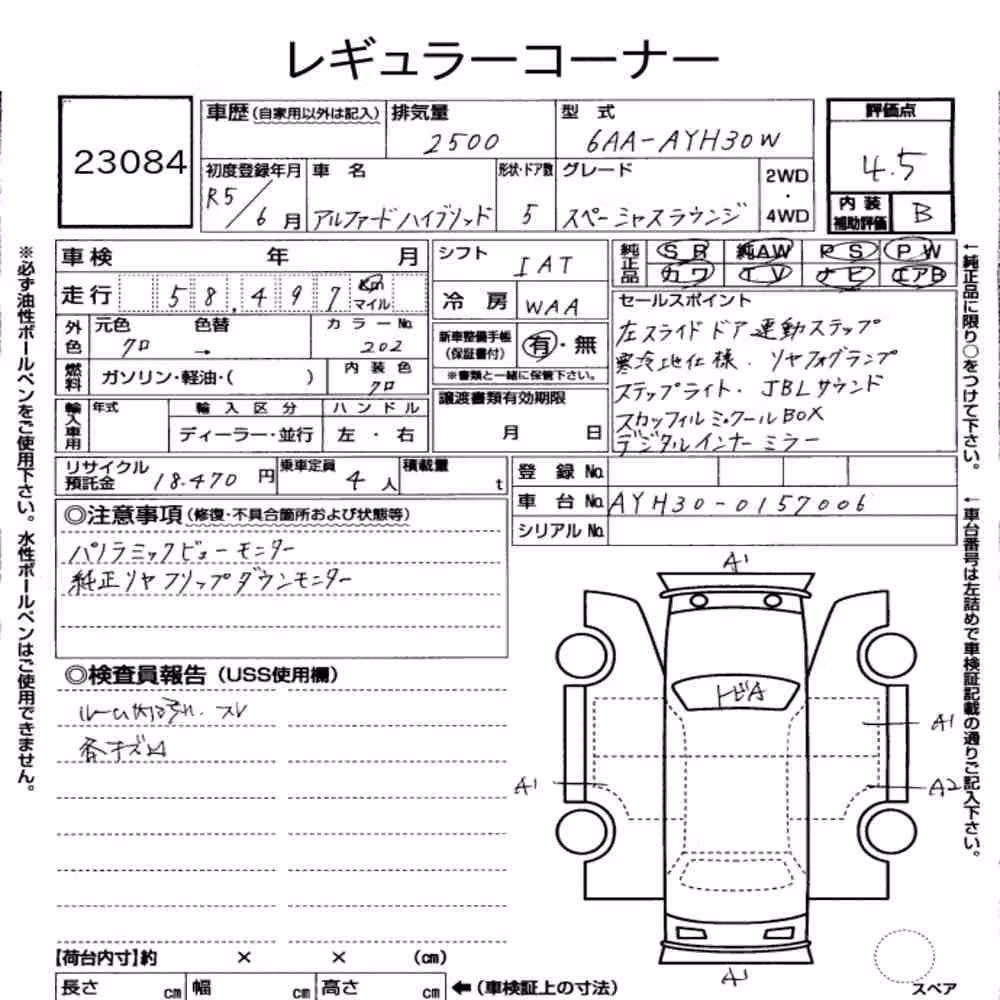 レギュラーコーナー
23084
車歴(自家用以外は記入) 排気量 2500 型式 6AA-AYH30W 評価点 4.5
初度登録年月 R5/6月 車名 アルファードハイブリッド 形状・ドア数 5 グレード 2WD・4WD 内装補助評価 B
車検 年 月 シフト IAT 純正品 SR 純AW PS PW
走行 58,497 km マイル 冷房 WAA カワ TV ナビ エアB
外色 元色 クロ 色替 → カラーNo. 202 新車整備手帳(保証書付) 有・無 ※書類と一緒に保管下さい。
燃料 ガソリン・軽油・( ) 内装色 クロ 譲渡書類有効期限 月 日
輸入車用 年式 輸入区分 ディーラー・並行 ハンドル 左・右
セールスポイント
左スライドドア運動ステップ
寒冷地仕様. リヤフォグランプ
ステップライト. JBLサウンド
スカッフイルミ・クールBOX
デジタルインナーミラー
リサイクル預託金 18.470円 乗車定員 4人 積載量 t 登録No.
車台No. AYH30-0157006
シリアルNo.
◎注意事項(修復・不具合箇所および状態等)
パノラミックビューモニター
純正リヤフリップダウンモニター
◎検査員報告(USS使用欄)
スレ
各キズ凹
A1
トビA
A1
A1
A2
A1
スペア
【荷台内寸】約 × × (cm)
長さ cm 幅 cm 高さ cm ←(車検証上の寸法)
※必ず油性ボールペンをご使用下さい。水性ボールペンはご使用できません。
←純正品に限り○をつけて下さい。
←車台番号は左詰めで車検証記載の通りご記入下さい。